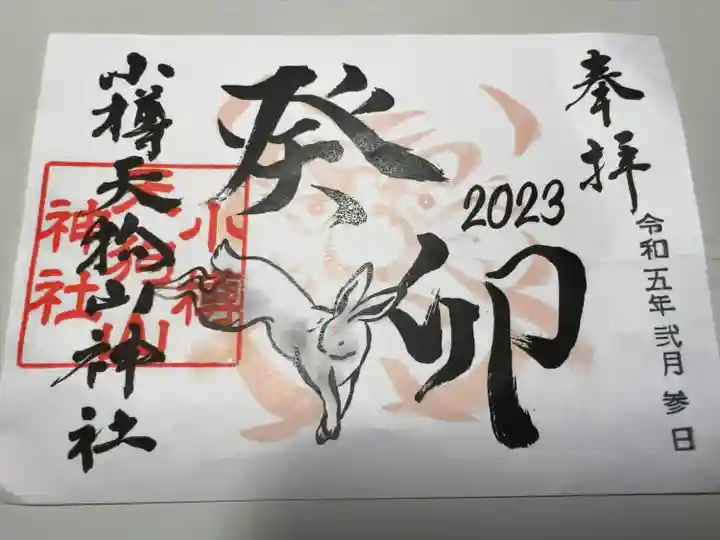 奉拝
令和五年 弐月 参日
癸卯
2023
小樽天狗山神社
小樽
天狗山
神社